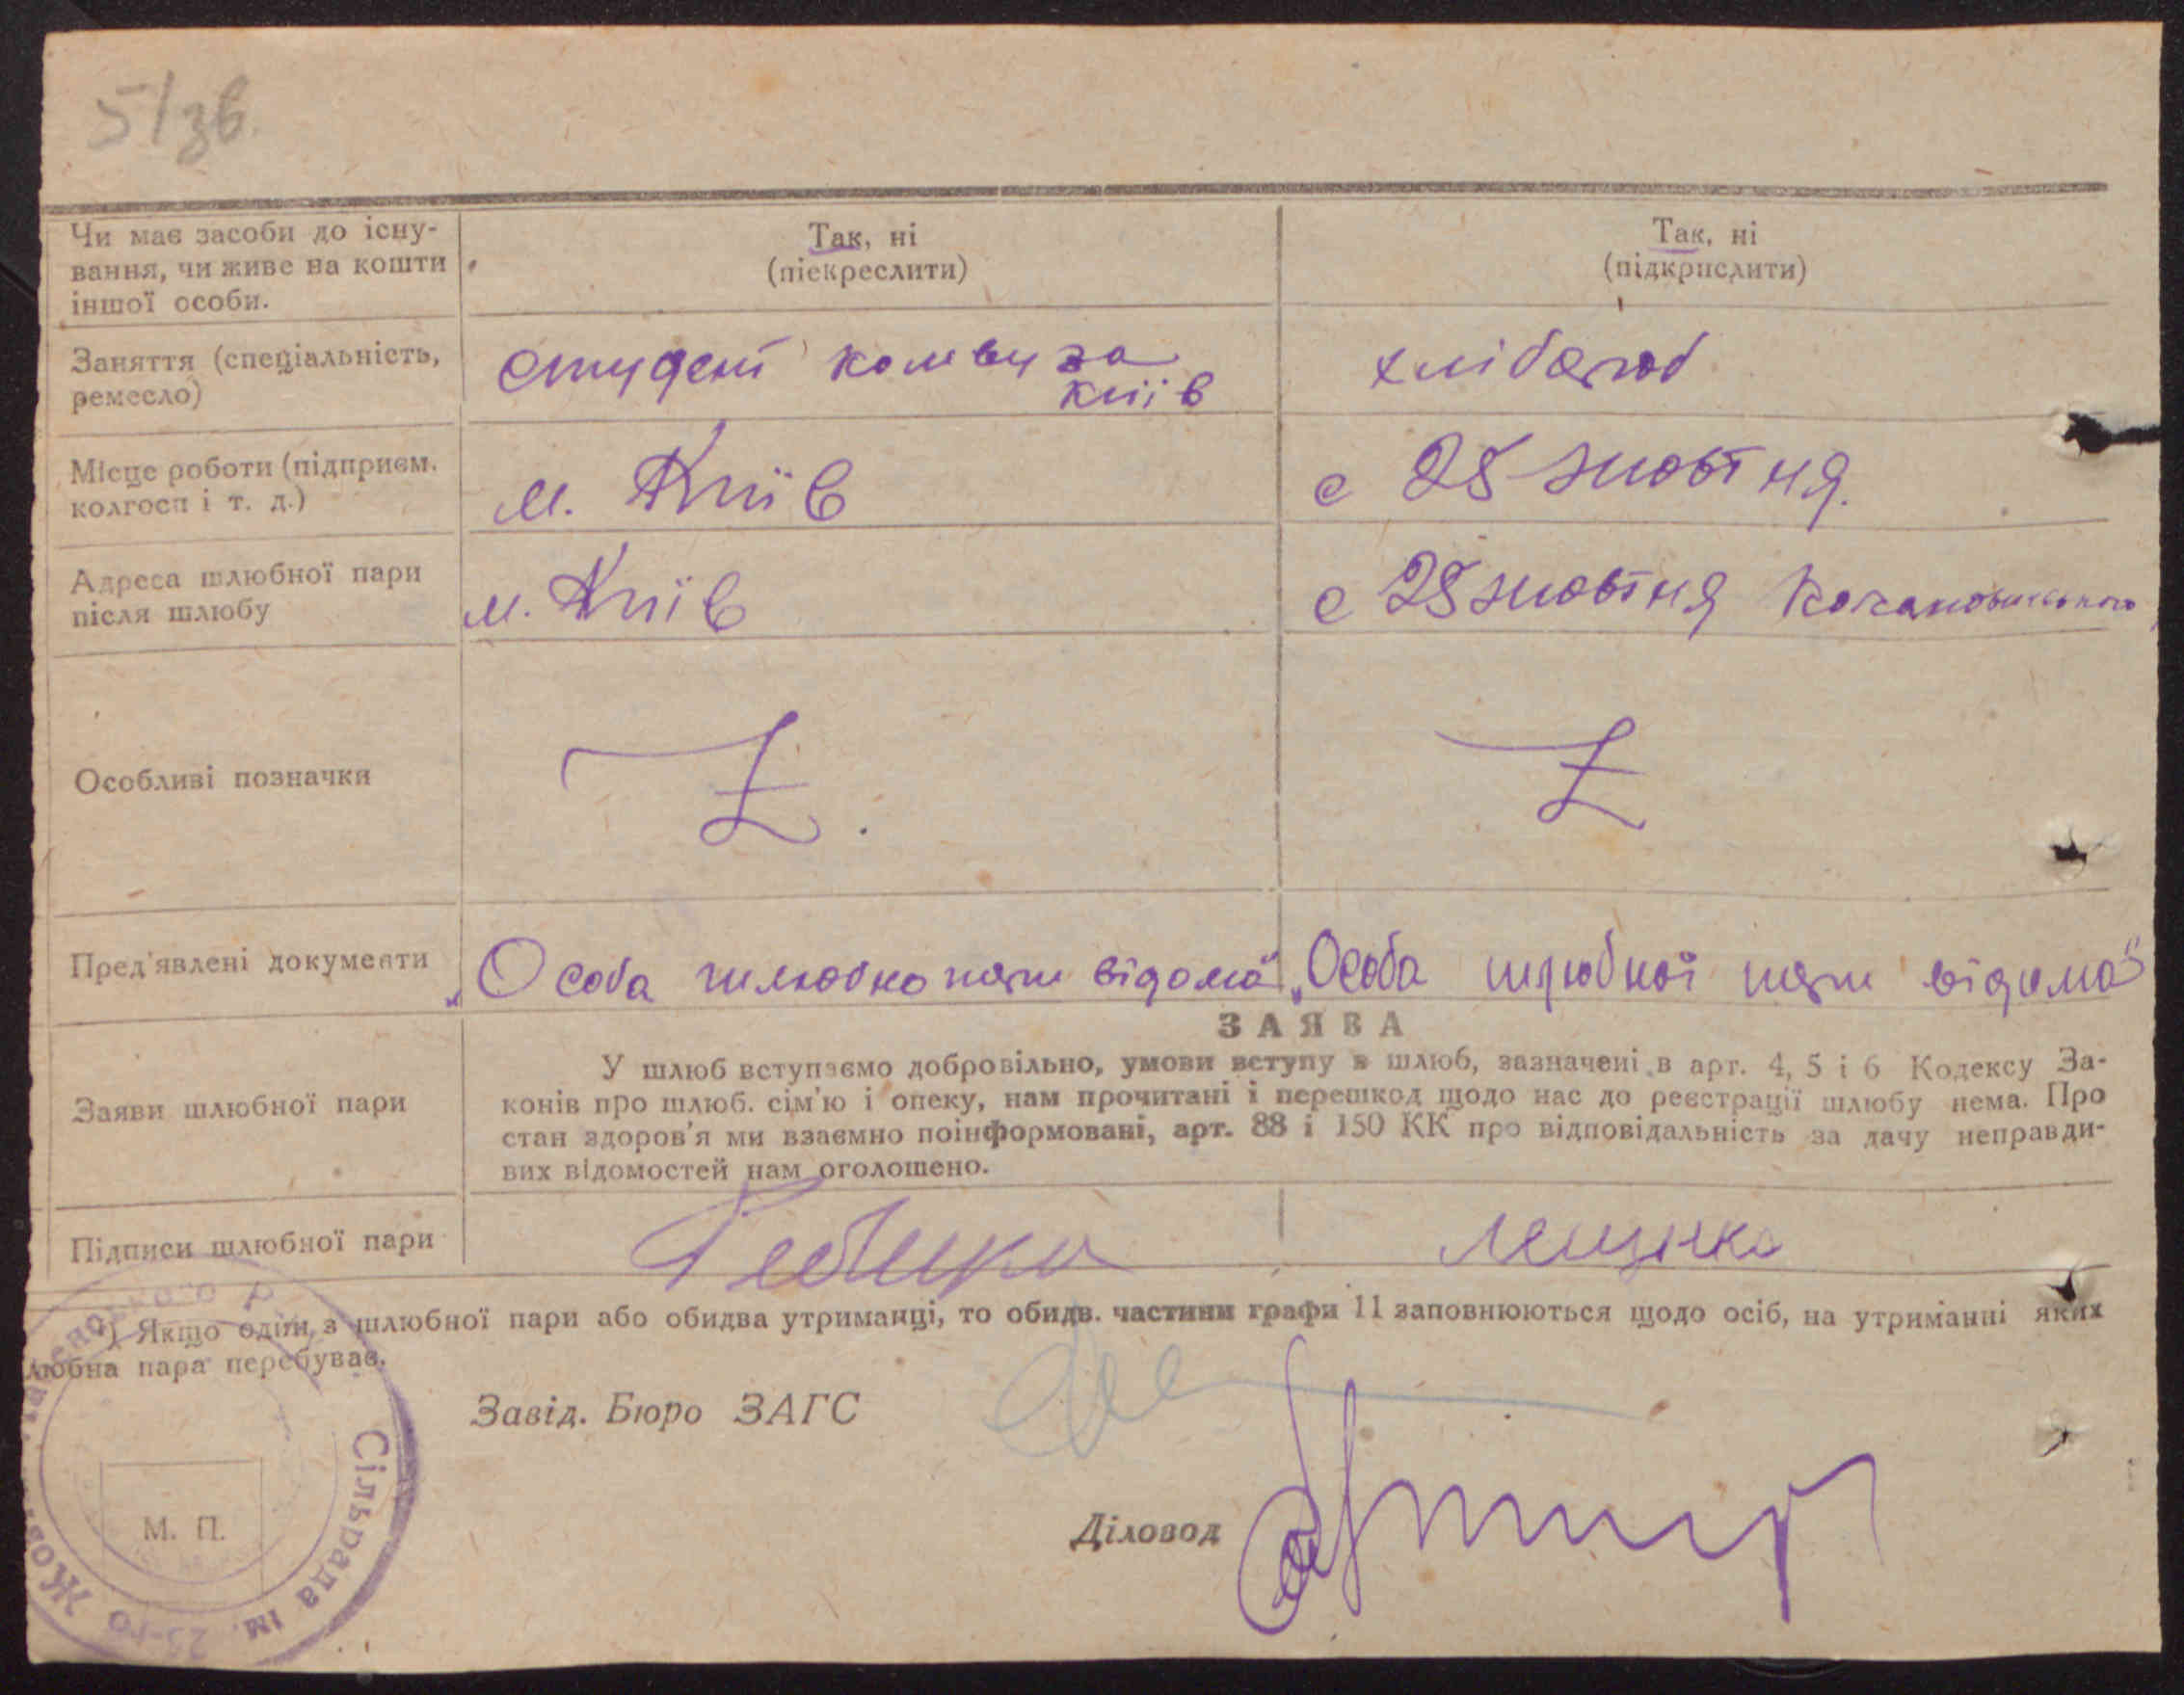 51зв.
Чи має засоби до існу-
вання, чи живе на кошти
іншої особи.
Так, ні
(піекреслити)
Так, ні
(підкрпслити)
Заняття (спеціальність,
ремесло)
студент комвуза
Київ
хлібороб
Місце роботи (підприєм.
колгосп і т. д.)
м. Київ
с 28 жовтня.
Адреса шлюбної пари
після шлюбу
м. Київ
с 28 жовтня
Особливі позначки
Z.
Z
Пред'явлені документи
„Особа шлюбно пари відома"
„Особа шлюбної пари відома"
Заяви шлюбної пари
ЗАЯВА
У шлюб вступаємо добровільно, умови вступу в шлюб, зазначені в арт. 4, 5 і 6 Кодексу За-
конів про шлюб. сім'ю і опеку, нам прочитані і перешкод щодо нас до реєстрації шлюбу нема. Про
стан здоров'я ми взаємно поінформовані, арт. 88 і 150 КК про відповідальність за дачу неправди-
вих відомостей нам оголошено.
Підписи шлюбної пари
*) Якщо один з шлюбної пари або обидва утриманці, то обидв. частини графи 11 заповнюються щодо осіб, на утриманні яких
любна пара перебуває.
Завід. Бюро ЗАГС
Діловод
М. П.
Сільрада ім.